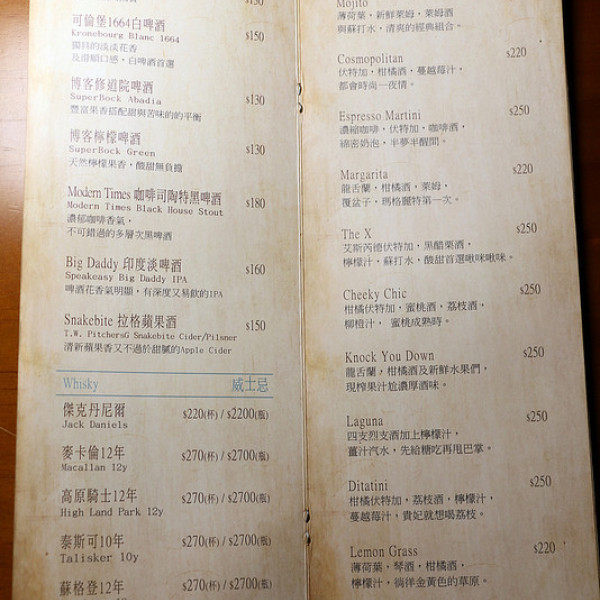 $130
可倫堡1664白啤酒
Kronebourg Blanc 1664 $150
獨具的淡淡花香
及滑順口感,白啤酒首選
博客修道院啤酒
SuperBock Abadia $130
豐富果香搭配甜與苦味的的平衡
博客檸檬啤酒
SuperBock Green $130
天然檸檬果香,酸甜無負擔
Modern Times 咖啡司陶特黑啤酒
Modern Times Black House Stout $180
濃郁咖啡香氣,
不可錯過的多層次黑啤酒
Big Daddy 印度淡啤酒
Speakeasy Big Daddy IPA $160
啤酒花香氣明顯,有深度又易飲的IPA
Snakebite 拉格蘋果酒
T.W. PitchersG Snakebite Cider/Pilsner $150
清新蘋果香又不過於甜膩的Apple Cider
Whisky 威士忌
傑克丹尼爾 $220(杯) / $2200(瓶)
Jack Daniels
麥卡倫12年 $270(杯) / $2700(瓶)
Macallan 12y
高原騎士12年 $270(杯) / $2700(瓶)
High Land Park 12y
泰斯可10年 $270(杯) / $2700(瓶)
Talisker 10y
蘇格登12年 $270(杯) / $2700(瓶)
Mojito
薄荷葉,新鮮萊姆,萊姆酒
與蘇打水,清爽的經典組合。
Cosmopolitan $220
伏特加,柑橘酒,蔓越莓汁,
都會時尚一夜情。
Espresso Martini $250
濃縮咖啡,伏特加,咖啡酒,
綿密奶泡,半夢半醒間。
Margarita $220
龍舌蘭,柑橘酒,萊姆,
覆盆子,瑪格麗特第一次。
The X $250
艾斯芮德伏特加,黑醋栗酒,
檸檬汁,蘇打水,酸甜首選啾咪啾咪。
Cheeky Chic $250
柑橘伏特加,蜜桃酒,荔枝酒,
柳橙汁, 蜜桃成熟時。
Knock You Down $250
龍舌蘭,柑橘酒及新鮮水果們,
現榨果汁尬濃厚酒味。
Laguna $250
四支烈支酒加上檸檬汁,
薑汁汽水,先給糖吃再甩巴掌。
Ditatini $250
柑橘伏特加,荔枝酒,檸檬汁,
蔓越莓汁,貴妃就想喝荔枝。
Lemon Grass $220
薄荷葉,琴酒,柑橘酒,
檸檬汁,徜徉金黃色的草原。